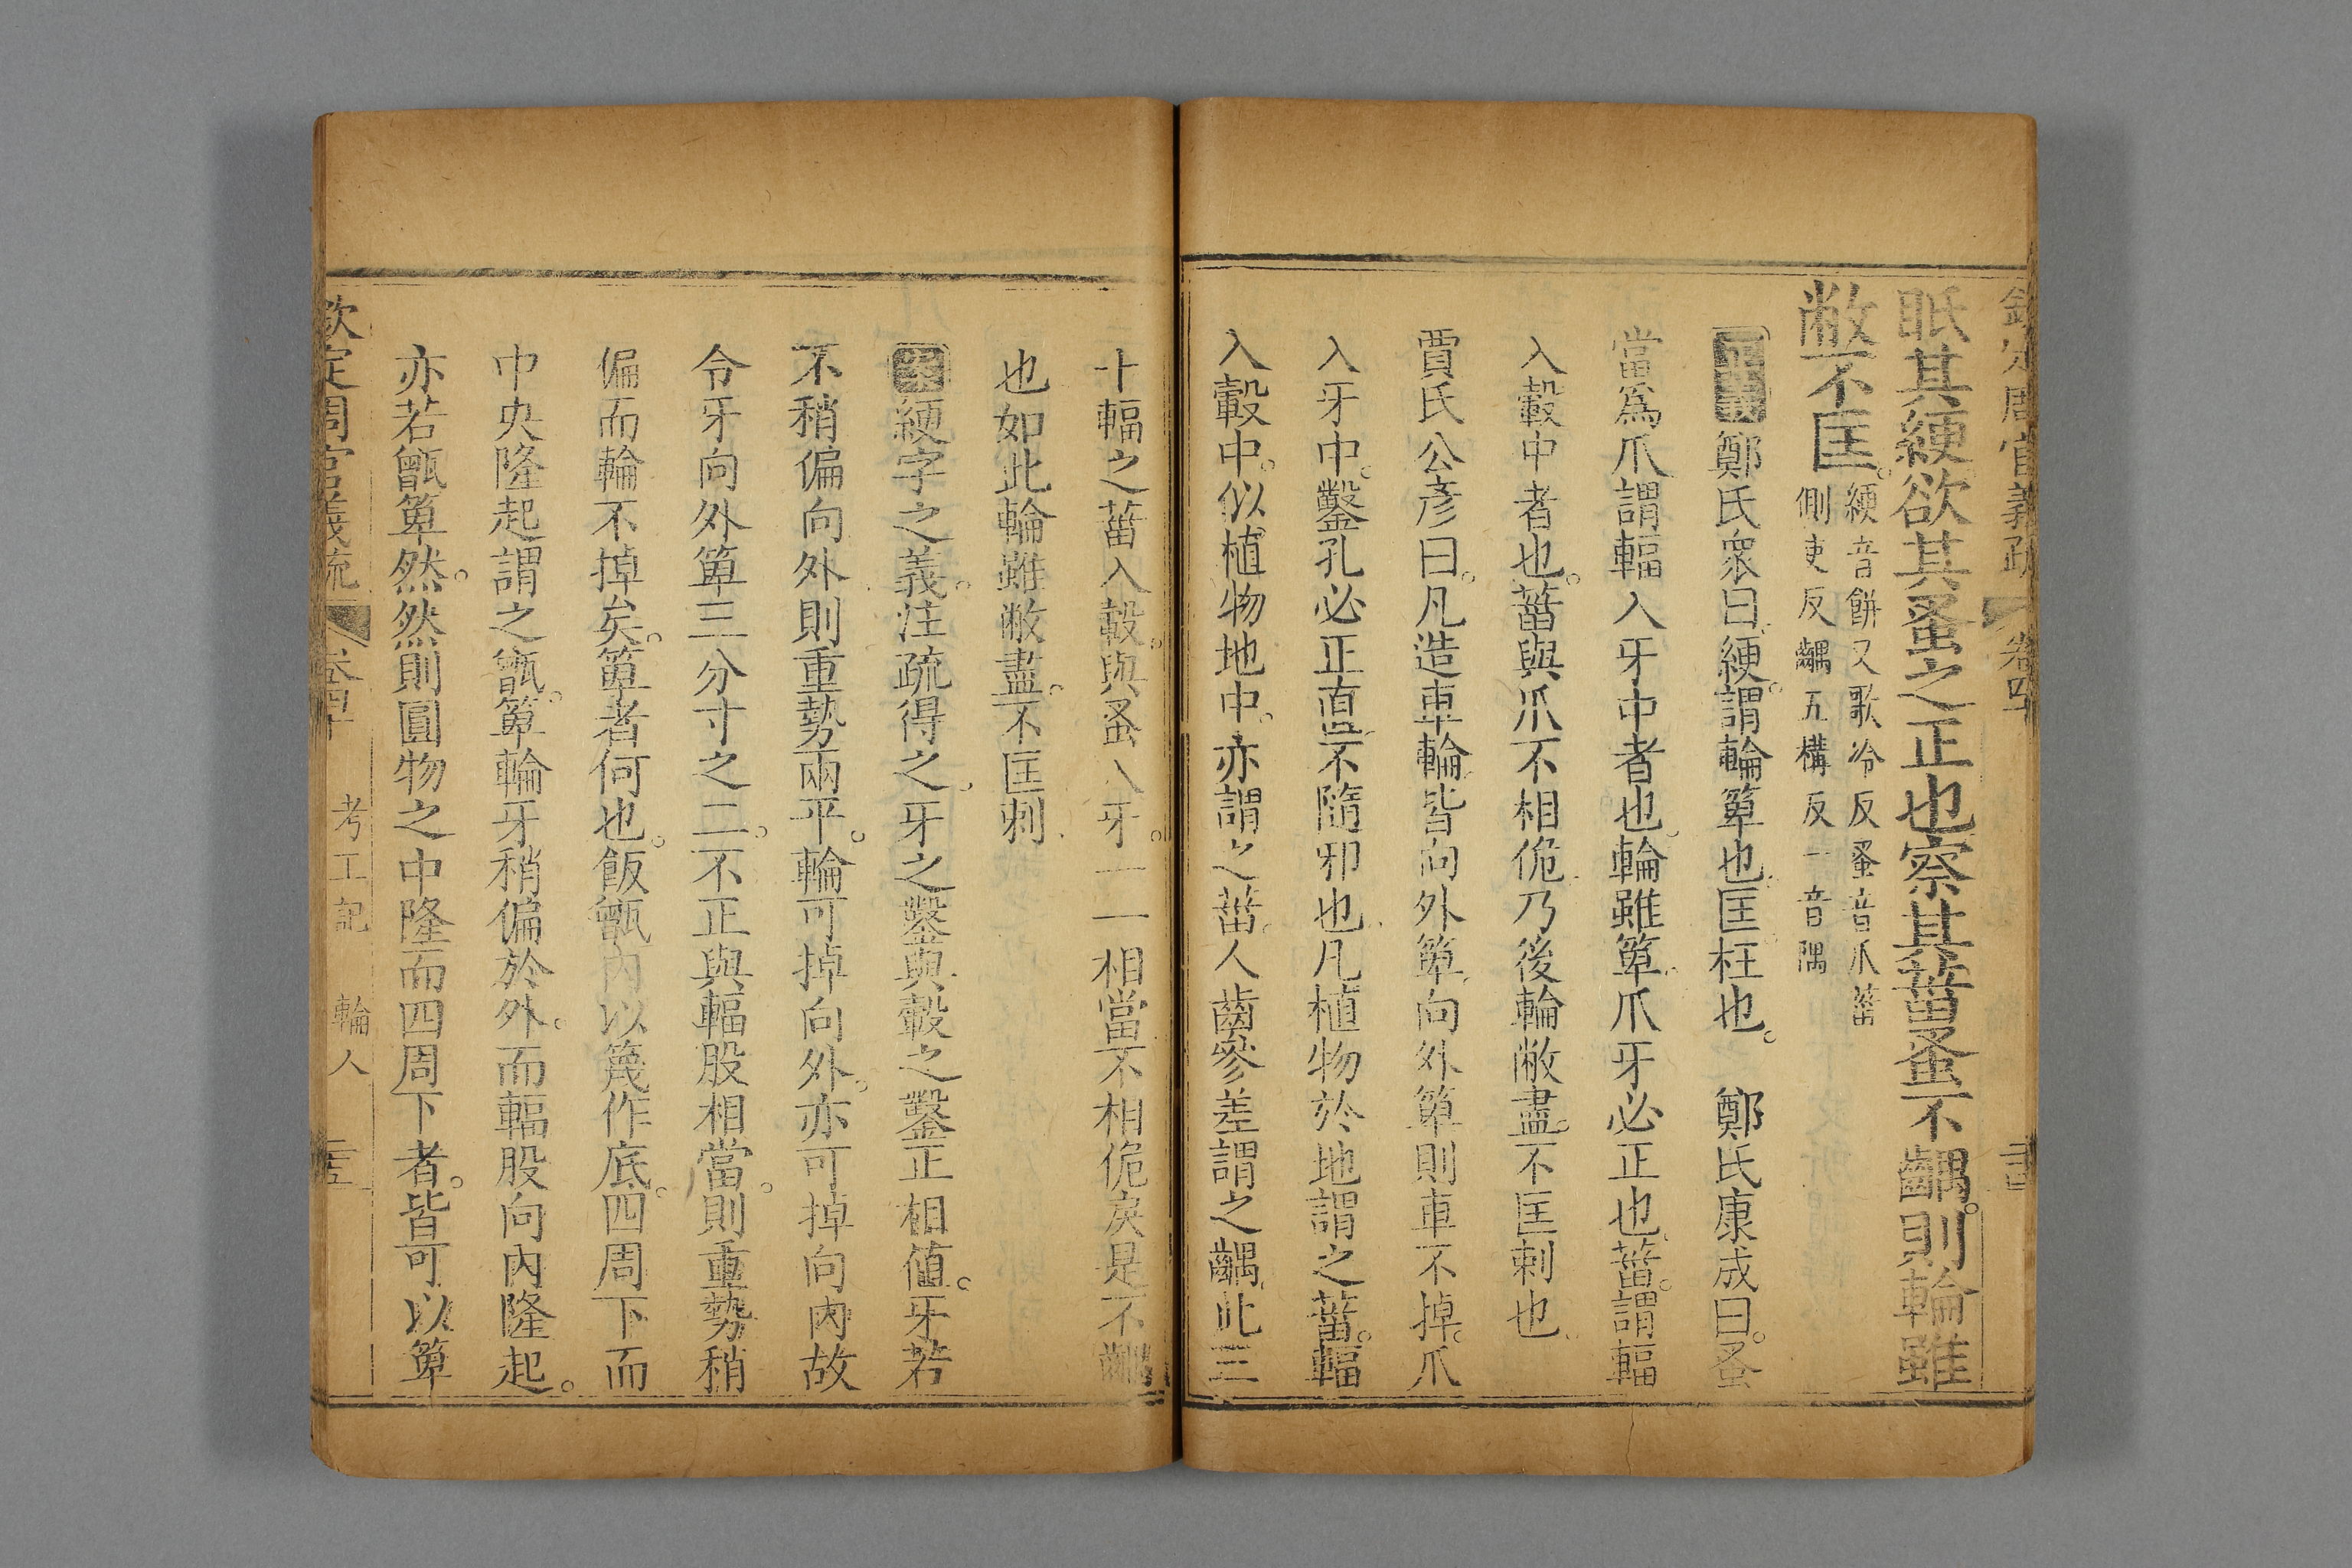 欽定周官義疏 卷四十
眡其綆欲其蚤之正也察其菑蚤不齵。則輪雖
敝不匡。
綆音餅又歌冷反蚤音爪菑
側吏反齵五構反一音隅
正義鄭氏衆曰綆。謂輪箄也匡枉也。 鄭氏康成曰。蚤
當爲爪謂輻入牙中者也。輪雖箄。爪牙必正也菑。謂輻
入轂中者也。菑與爪不相佹。乃後輪敝盡。不匡刺也。
賈氏公彥曰。凡造車輪。皆向外箄。向外箄則車不掉。爪
入牙中。鑿孔必正直。不隨邪也。凡植物於地謂之菑。輻
入轂中。似植物地中。亦謂之菑。人齒參差謂之齵。此三
十輻之菑入轂。與蚤入牙。一一相當。不相佹戾是不齵
也如此輪雖敝盡。不匡刺。
案綆字之義。注疏得之。牙之鑿與轂之鑿正相值。牙若
不稍偏向外則重勢兩平。輪可掉向外。亦可掉向內故
令牙向外箄三分寸之二。不正與輻股相當。則重勢稍
偏而輪不掉矣。箄者何也。飯甑內以篾作底。四周下而
中央隆起謂之甑。箄輪牙稍偏於外。而輻股向內隆起。
亦若甑箄然。然則圓物之中隆而四周下者。皆可以箄
欽定周官義疏 卷四十 考工記 輪人 二五